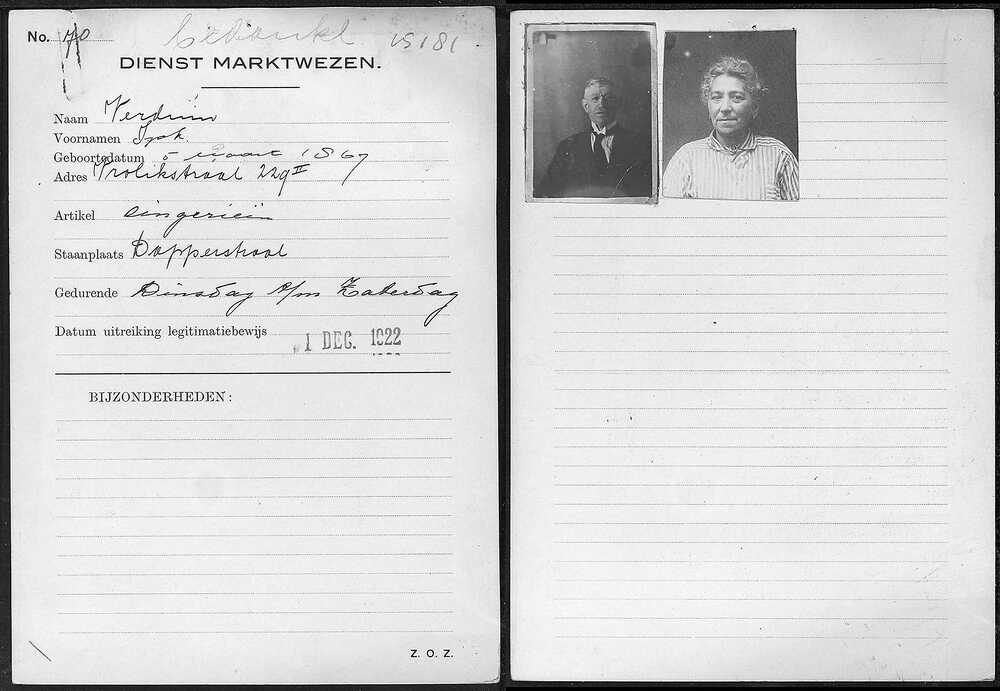 No. 70 Bedankt 15181
DIENST MARKTWEZEN.
Naam Verduin
Voornamen Izak.
Geboortedatum 5 maart 1867
Adres Vrolikstraat 229 II
Artikel
Staanplaats Dapperstraat
Gedurende Dinsdag t/m Zaterdag
Datum uitreiking legitimatiebewijs 1 DEC. 1922
BIJZONDERHEDEN:
Z. O. Z.